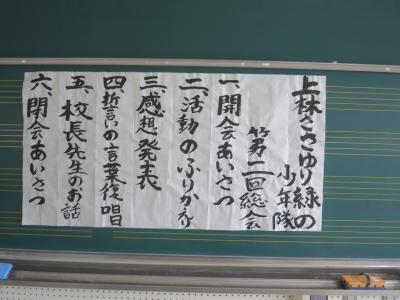 上林ささゆり緑の
少年隊
第二回総会
一、開会あいさつ
二、活動のふりかえり
三、感想発表
四、誓いの言葉復唱
五、校長先生のお話
六、閉会あいさつ